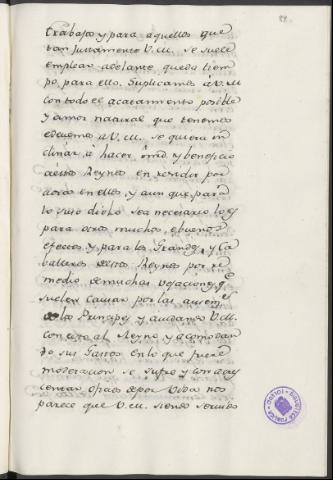 88.
trabajos y para aquellos que
tan Justamente V.M. se suele
emplear adelante queda tiem
po, para ello. Suplicamos á V.M
con todo el acatamiento posible
y amor natural que tenemos
debemos a V.M. se quiera in
clinar, á hacer mrd. y beneficio
aestos Reynos en residir por
aora en ellos, y aun que para
lo suso dicho sea necesario lo es
para otros muchos, e buenos
efectos y para los Grandes, y Ca
balleros destos Reynos por re
medio de muchas vejaciones, q.e
suelen causar por las ausen.s
de los Principes y ayudamos V.M.
con esto al Reyno y acomodan
do sus Gastos en lo que fuere
moderacion se sufre y con acre
centar oficios de por Vida nos
parece que V.M. siendo servido